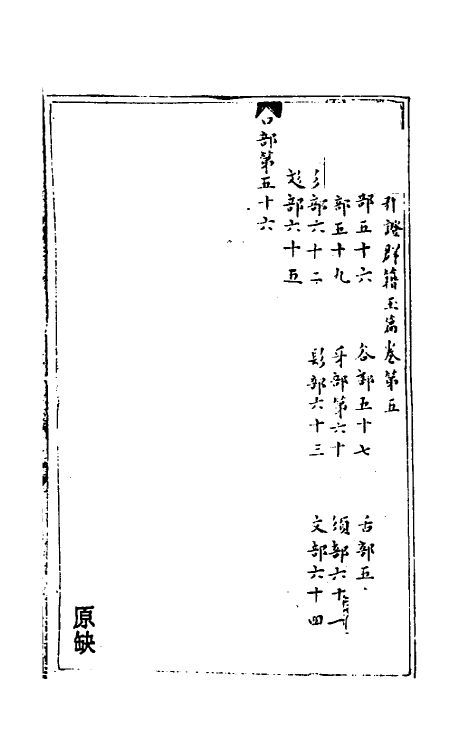 引證群籍玉篇卷第五
部五十六　谷部五十七　舌部五
部五十九　牙部第六十　須部六十一
彡部六十二　髟部六十三　文部六十四
部六十五
口部第五十六
原缺